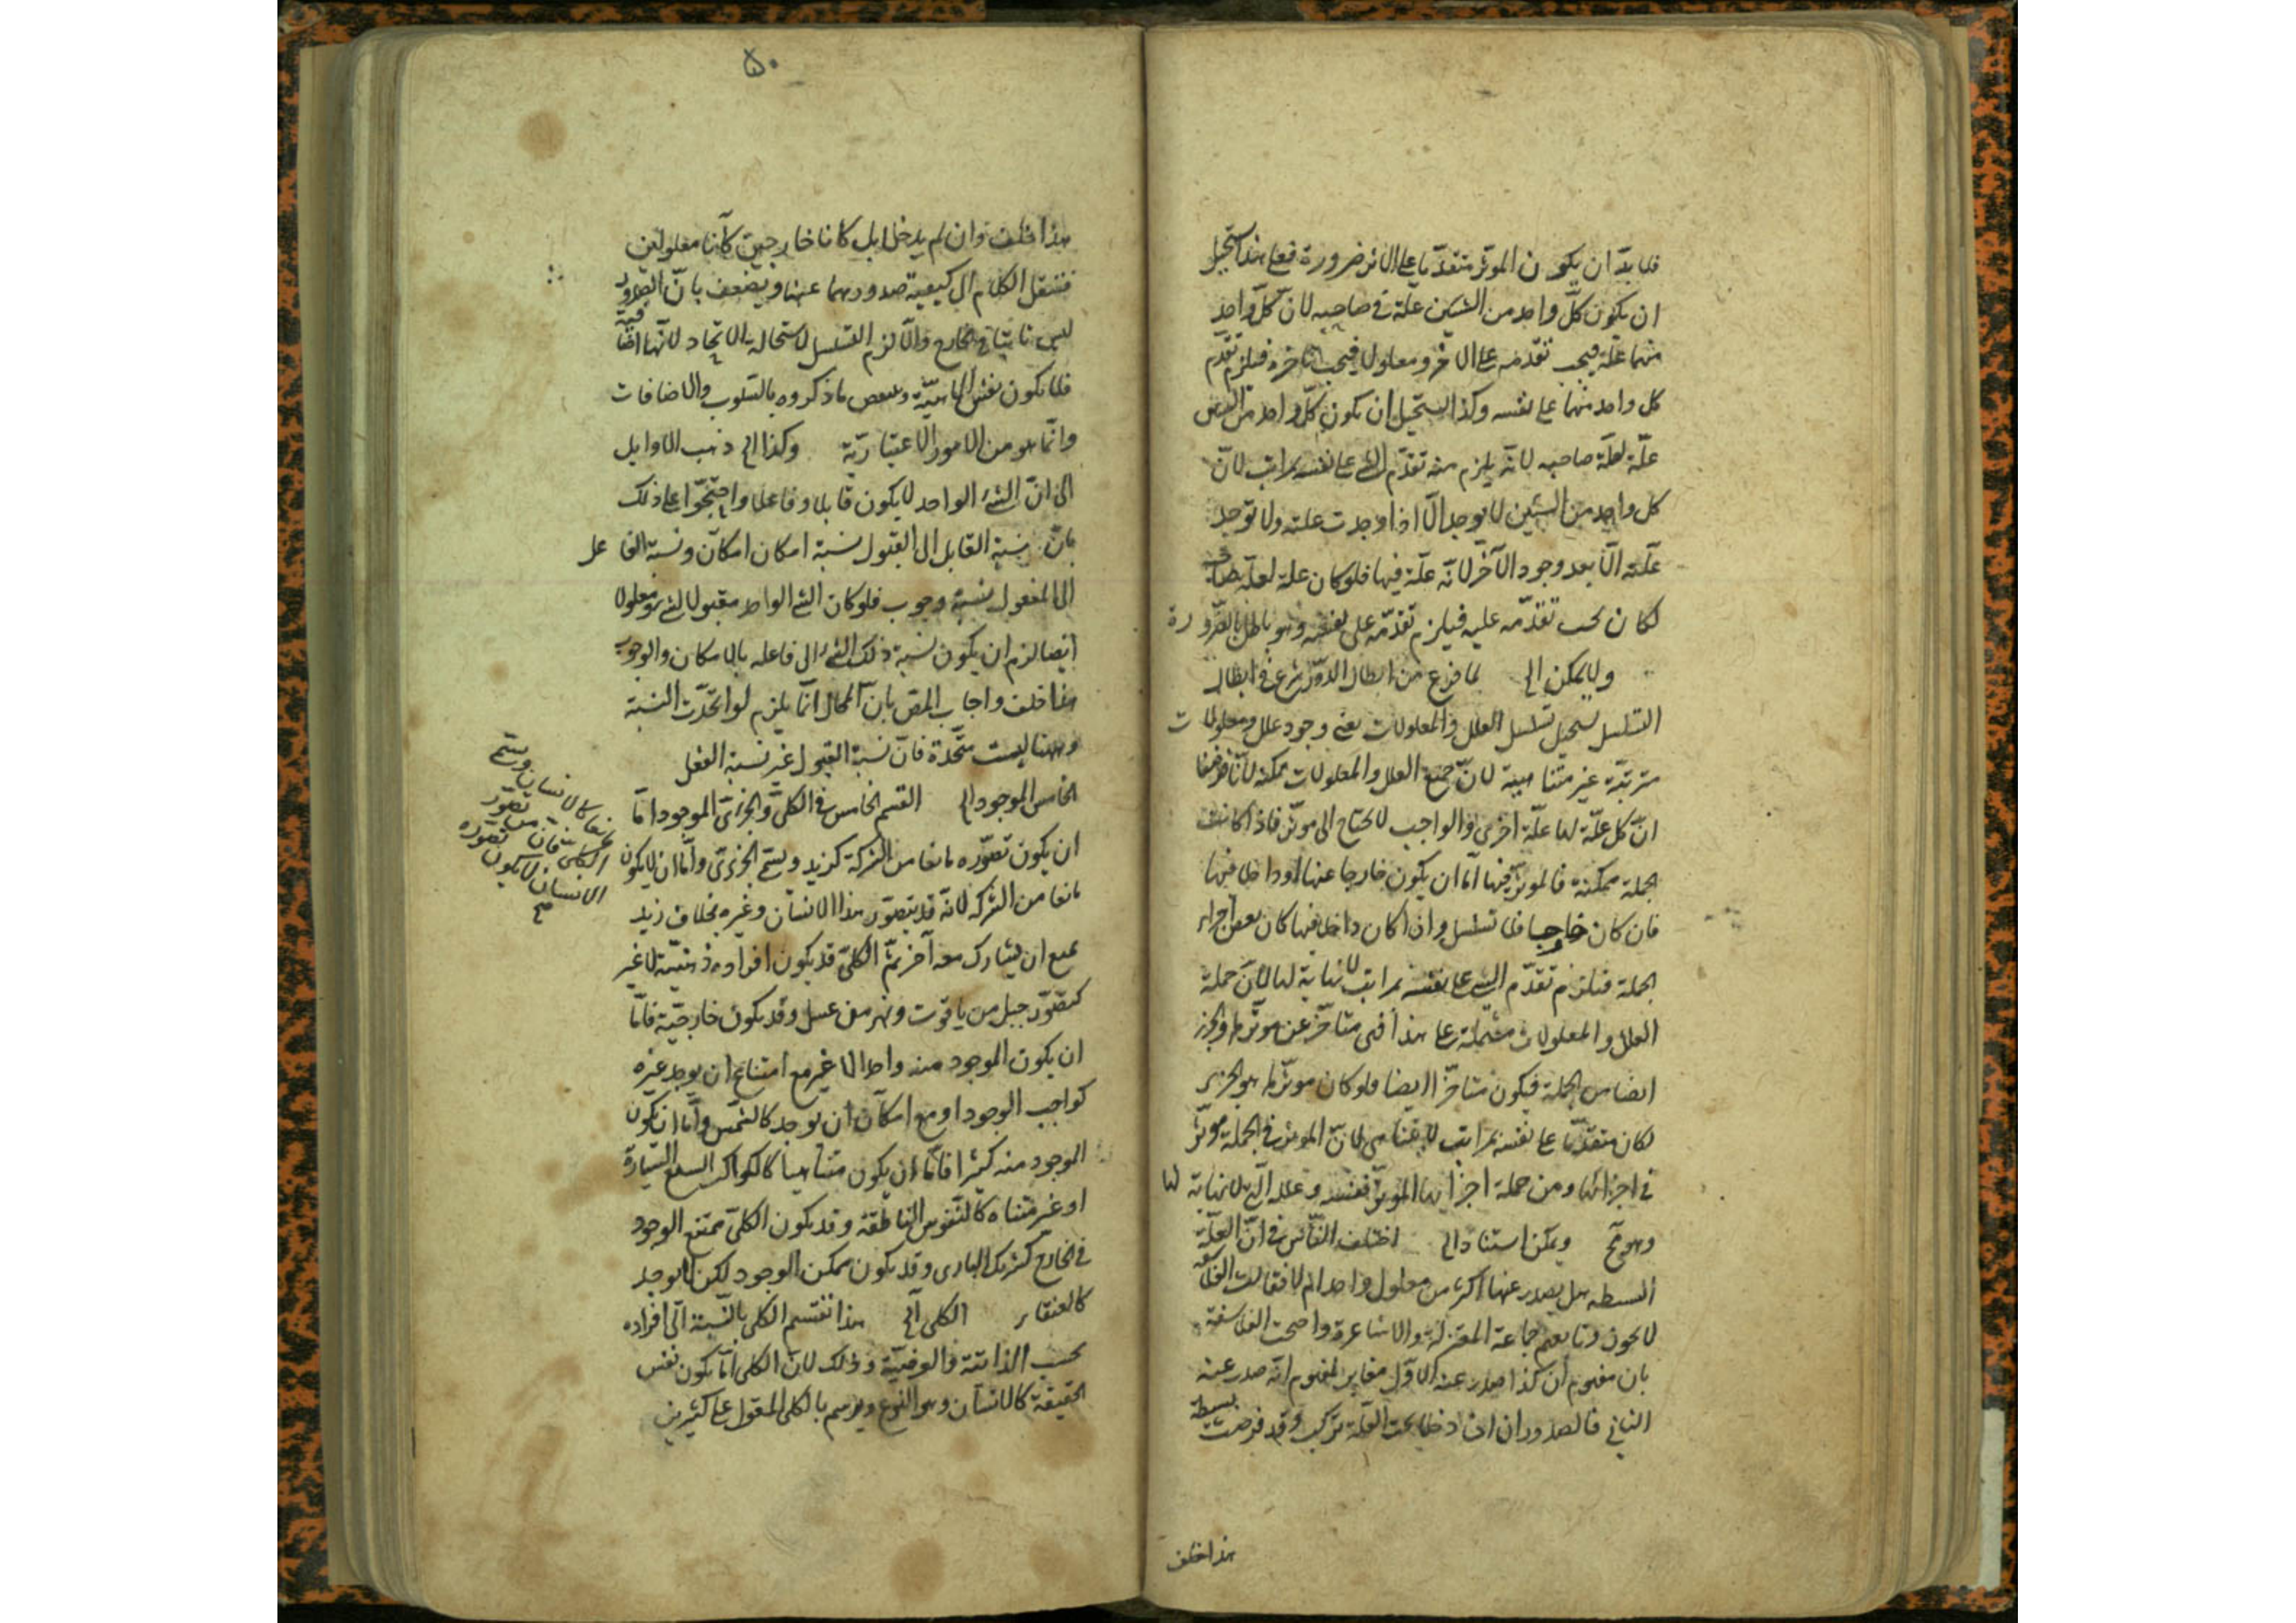 فلا بدّ ان يكون الموثر متقدّما على الاثر ضرورة فعلى هذا يستحيل
ان يكون كلّ واحد من الشيئين علّة في صاحبه لانّ كلّ واحد
منهما علّة فيجب تقدّمه على الاخر ومعلولا فيجب تاخره فيلزم تقدّم
كل واحد منهما على نفسه وكذا يستحيل ان يكون كلّ واحد من
علّة لعلّة صاحبه لانّه يلزم منه تقدّم الشئ على نفسه بمراتب لانّ
كل واحد من الشيئين لا يوجد الّا اذا وجدت علته ولا توجد
علّته الّا بعد وجود الآخر لانّه علّة فيها فلو كان علة لعلّة
لكان يجب تقدّمه عليه فيلزم تقدّمه على نفسه وهو باطل بالضّرورة
ولا يمكن الى لما فرغ من ابطال الدور شرع في ابطال
التسلسل يستحيل تسلسل العلل والمعلولات يعني وجود علل ومعلولات
مترتبّة غير متناهية لانّ جميع العلل والمعلولات ممكنة لانّا فرضنا
انّ كل علّة لها علّة اخرى والواجب لا يحتاج الى موثر فاذا كانت
الجملة ممكنة فالموثّر فيها امّا ان يكون خارجا عنها او داخلا فيها
فان كان خارجيا فلا تسلسل وان كان داخلا فيها كان بعض اجزاء
الجملة فيلزم تقدّم الشئ على نفسه بمراتب لا نهاية لها لانّ جملة
العلل والمعلولات مشتملة على هذا فهي متاخّر عن موثّرها والجزء
ايضا من الجملة فيكون متاخّرا ايضا فلو كان موثّرها هو الجزء
لكان متقدّما على نفسه بمراتب لا يتناهى لانّ الموثر في الجملة موثّر
في اجزائها ومن جملة اجزائها الموثّر نفسه وعلله الى بلا نهاية لها
وهو مح ويمكن استناد الى اختلف النّاس في انّ العلّة
البسيطة هل يصدر عنها اكثر من معلول واحد ام لا فقالت الفلاسفة
لا يجوز وتابعهم جماعة المعتزلة والاشاعرة واحتجت الفلاسفة
بان مفهوم ان كذا صدر عنه الاوّل مغاير لمفهوم انّه صدر عنه
الثاني فالصدوران ان دخلا تحت العلّة تركبت وقد فرضت بسيطة
هذا خلف
۵۰
هذا خلف وان لم يدخلا بل كانا خارجين كانا معلولين
فننقل الكلام الى كيفية صدورهما عنها ويضعف بانّ الصدور
ليس ثابتا في الخارج والّا لزم التسلسل لاستحالة الاتحاد لانّها اضافية
فلا يكون نفس الماهيّة وينتقض ما ذكروه بالسّلوب والاضافات
وانّما هو من الامور الاعتباريّة وكذا الى ذهب الاوايل
الى انّ الشئ الواحد لا يكون قابلا وفاعلا واحتجّوا على ذلك
بانّ نسبة القابل الى القبول نسبة امكان امكان ونسبة الفاعل
الى المفعول نسبة وجوب فلو كان الشئ الواحد مقبولا لشئ ومعلولا
ايضا لزم ان يكون نسبة ذلك الشئ الى فاعله بالامكان والوجوب
هذا خلف واجاب المص بانّ المحال انّما يلزم لو اتحدّت النسبة
وههنا ليست متّحدة فانّ نسبة القبول غير نسبة الفعل
الخامس الموجود الى القسم الخامس في الكلّي والجزئي الموجود امّا
ان يكون تصوّره مانعا من الشركة كزيد ويسمّى الجزئي وامّا ان لا يكون
مانعا من الشركة لانّه قد يتصوّر هذا الانسان وغيره بخلاف زيد
يمنع ان يشارك معه آخر ثمّ الكلّي قد يكون افراده ذهنيّة لا غير
كتصوّر جبل من ياقوت ونهر من عسل وقد يكون خارجيّة فامّا
ان يكون الموجود منه واحد الا غير مع امتناع ان يوجد غيره
كواجب الوجود او مع امكان ان يوجد كالشمس وامّا ان يكون
الموجود منه كثيرا فامّا ان يكون متناهيا كالكواكب السبع السّيّارة
او غير متناه كالنّفوس الناطقة وقد يكون الكلّي ممتنع الوجود
في الخارج كشريك الباري وقد يكون ممكن الوجود لكن لا يوجد
كالعنقاء الكلي الى هذا تقسيم الكلي بالنّسبة الى افراده
بحسب الذاتيّة والعرضيّة وذلك لانّ الكلي امّا يكون نفس
الحقيقة كالانسان وهو النّوع ويرسم بالكلي المقول على كثيرين
مانعا كالانسان ويسمّى
الكلي فان تصوّر
الانسان لا يكون تصوّره
صح